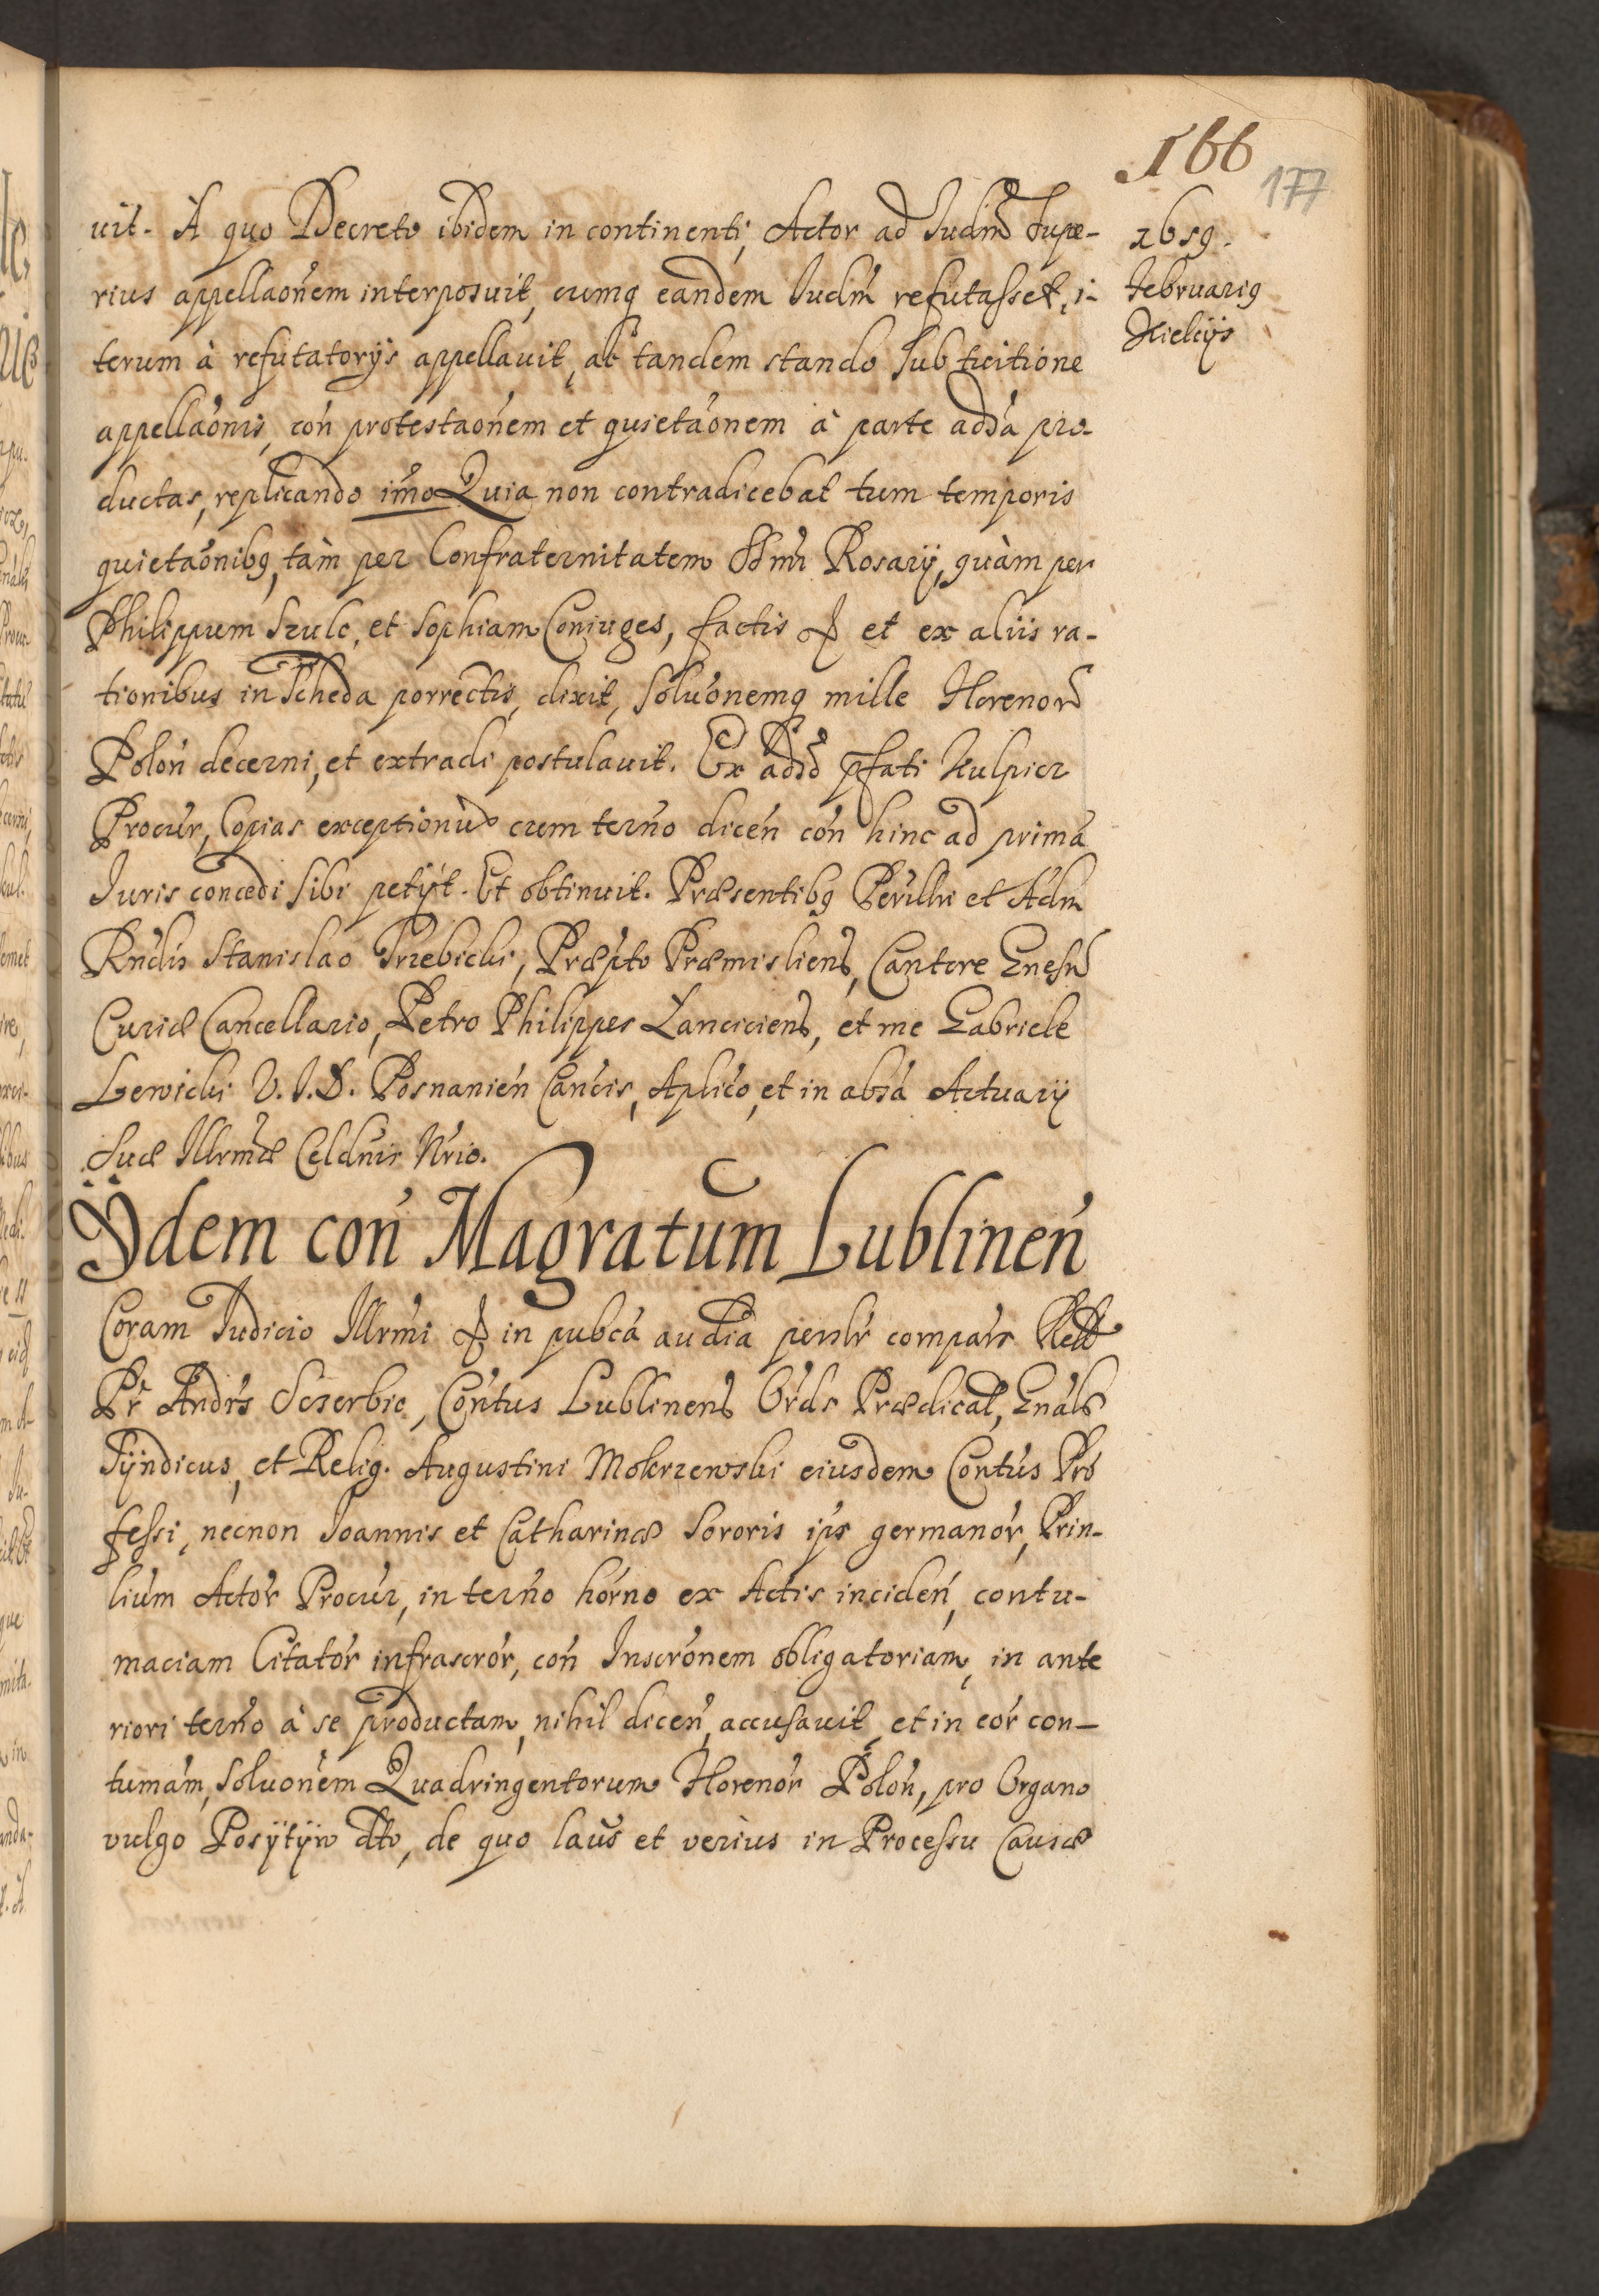 166
177
1659.
Februarig
Kielcijs
uit. À quo Decreto ibidem in continenti, Actor ad Iudm Supe-
rius appellaónem interposuit, cumq eandem Iudm refutasset, i-
terum à refutatorijs appellauit, at tandem stando sub
appellaónis, cón protestaónem et quietaónem à parte addá pro-
ductas, replicando imo Quia non contradicebat tum temporis
quietaónibg, tàm per Confraternitatem SSmi Rosarij, quàm per
Philippum Szulc, et Sophiam Coniuges, factis & et ex aliis ra-
tionibus in Scheda porrectis, dixit, soluónemq mille Florenor
Polón decerni, et extradi postulauit. Ex addo pfati Kulpier
Procúr, Copias exceptionú cum termo dicén cón hinc ad primá
Iuris concedi sibi petijt. Et obtinuit. Præsentibg Perilli et Adm
Rndis Stanislao Trzebicki, Præpto Præmisliens, Cantore Gnesn
Curiæ Cancellario, Petro Philippes Lanciciens, et me Gabriele
Lewicki V.I.D. Posnanién Cancis, Aplico, et in absá Actuarij
Suæ Illrmæ Celdnis Nrio.
Ÿdem cón Magratum Lublinén
Coram Iudicio Illrmi & in pubcá audia pernlr compárs Reld
Pr Andrs Sczerbic, Cóntus Lublinens Ords Prædicat, Gnals
Sÿndicus, et Relig. Augustini Mokrzewski eiusdem Contús Pro
fessi, necnon Ioannis et Catharinæ Sororis ips germanór, Prin-
lium Actór Procúr, in termo horno ex Actis incidén, contu-
maciam Citatór infrascrór, cón Inscrónem obligatoriam, in ante
riori termo à se productam, nihil dicén, accusauit, et in eór con-
tumám, soluónem Quadringentorum Florenór Polón, pro Organo
vulgo Posÿtÿw dto, de quo laus et verius in Processu Causæ